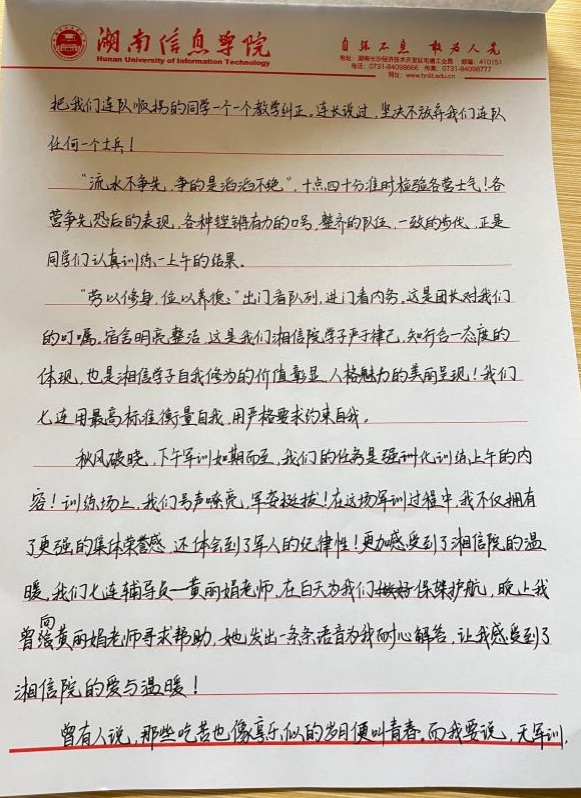 湖南信息学院
Hunan University of Information Technology
自强不息 敢为人先
地址：湖南长沙经济技术开发区毛塘工业园 邮编：410151
电话：0731-84098666 传真：0731-84098777
网址：www.hniit.edu.cn
把我们连队顺拐的同学一个一个教学纠正。连长说过，坚决不放弃我们连队
任何一个士兵！
“流水不争先，争的是滔滔不绝”，十点四十分准时检验各营士气！各
营争先恐后的表现，各种铿锵有力的口号，整齐的队伍，一致的步伐，正是
同学们认真训练一上午的结果。
“劳以修身，俭以养德。”出门看队列，进门看内务。这是团长对我们
的叮嘱。宿舍明亮整洁，这是我们湘信院学子严于律己，知行合一态度的
体现，也是湘信学子自我修为的价值彰显，人格魅力的美丽呈现！我们
七连用最高标准衡量自我，用严格要求约束自我。
秋风破晓，下午军训如期而至，我们的任务是强训化训练上午的内
容！训练场上，我们号声嘹亮，军姿挺拔！在这场军训过程中，我不仅拥有
了更强的集体荣誉感，还体会到了军人的纪律性！更加感受到了湘信院的温
暖，我们七连辅导员—黄丽娟老师，在白天为我们保驾护航，晚上我
曾向黄丽娟老师寻求帮助，她发出一条条语音为我耐心解答，让我感受到了
湘信院的爱与温暖！
曾有人说，那些吃苦也像享乐似的岁月便叫青春。而我要说，无军训，